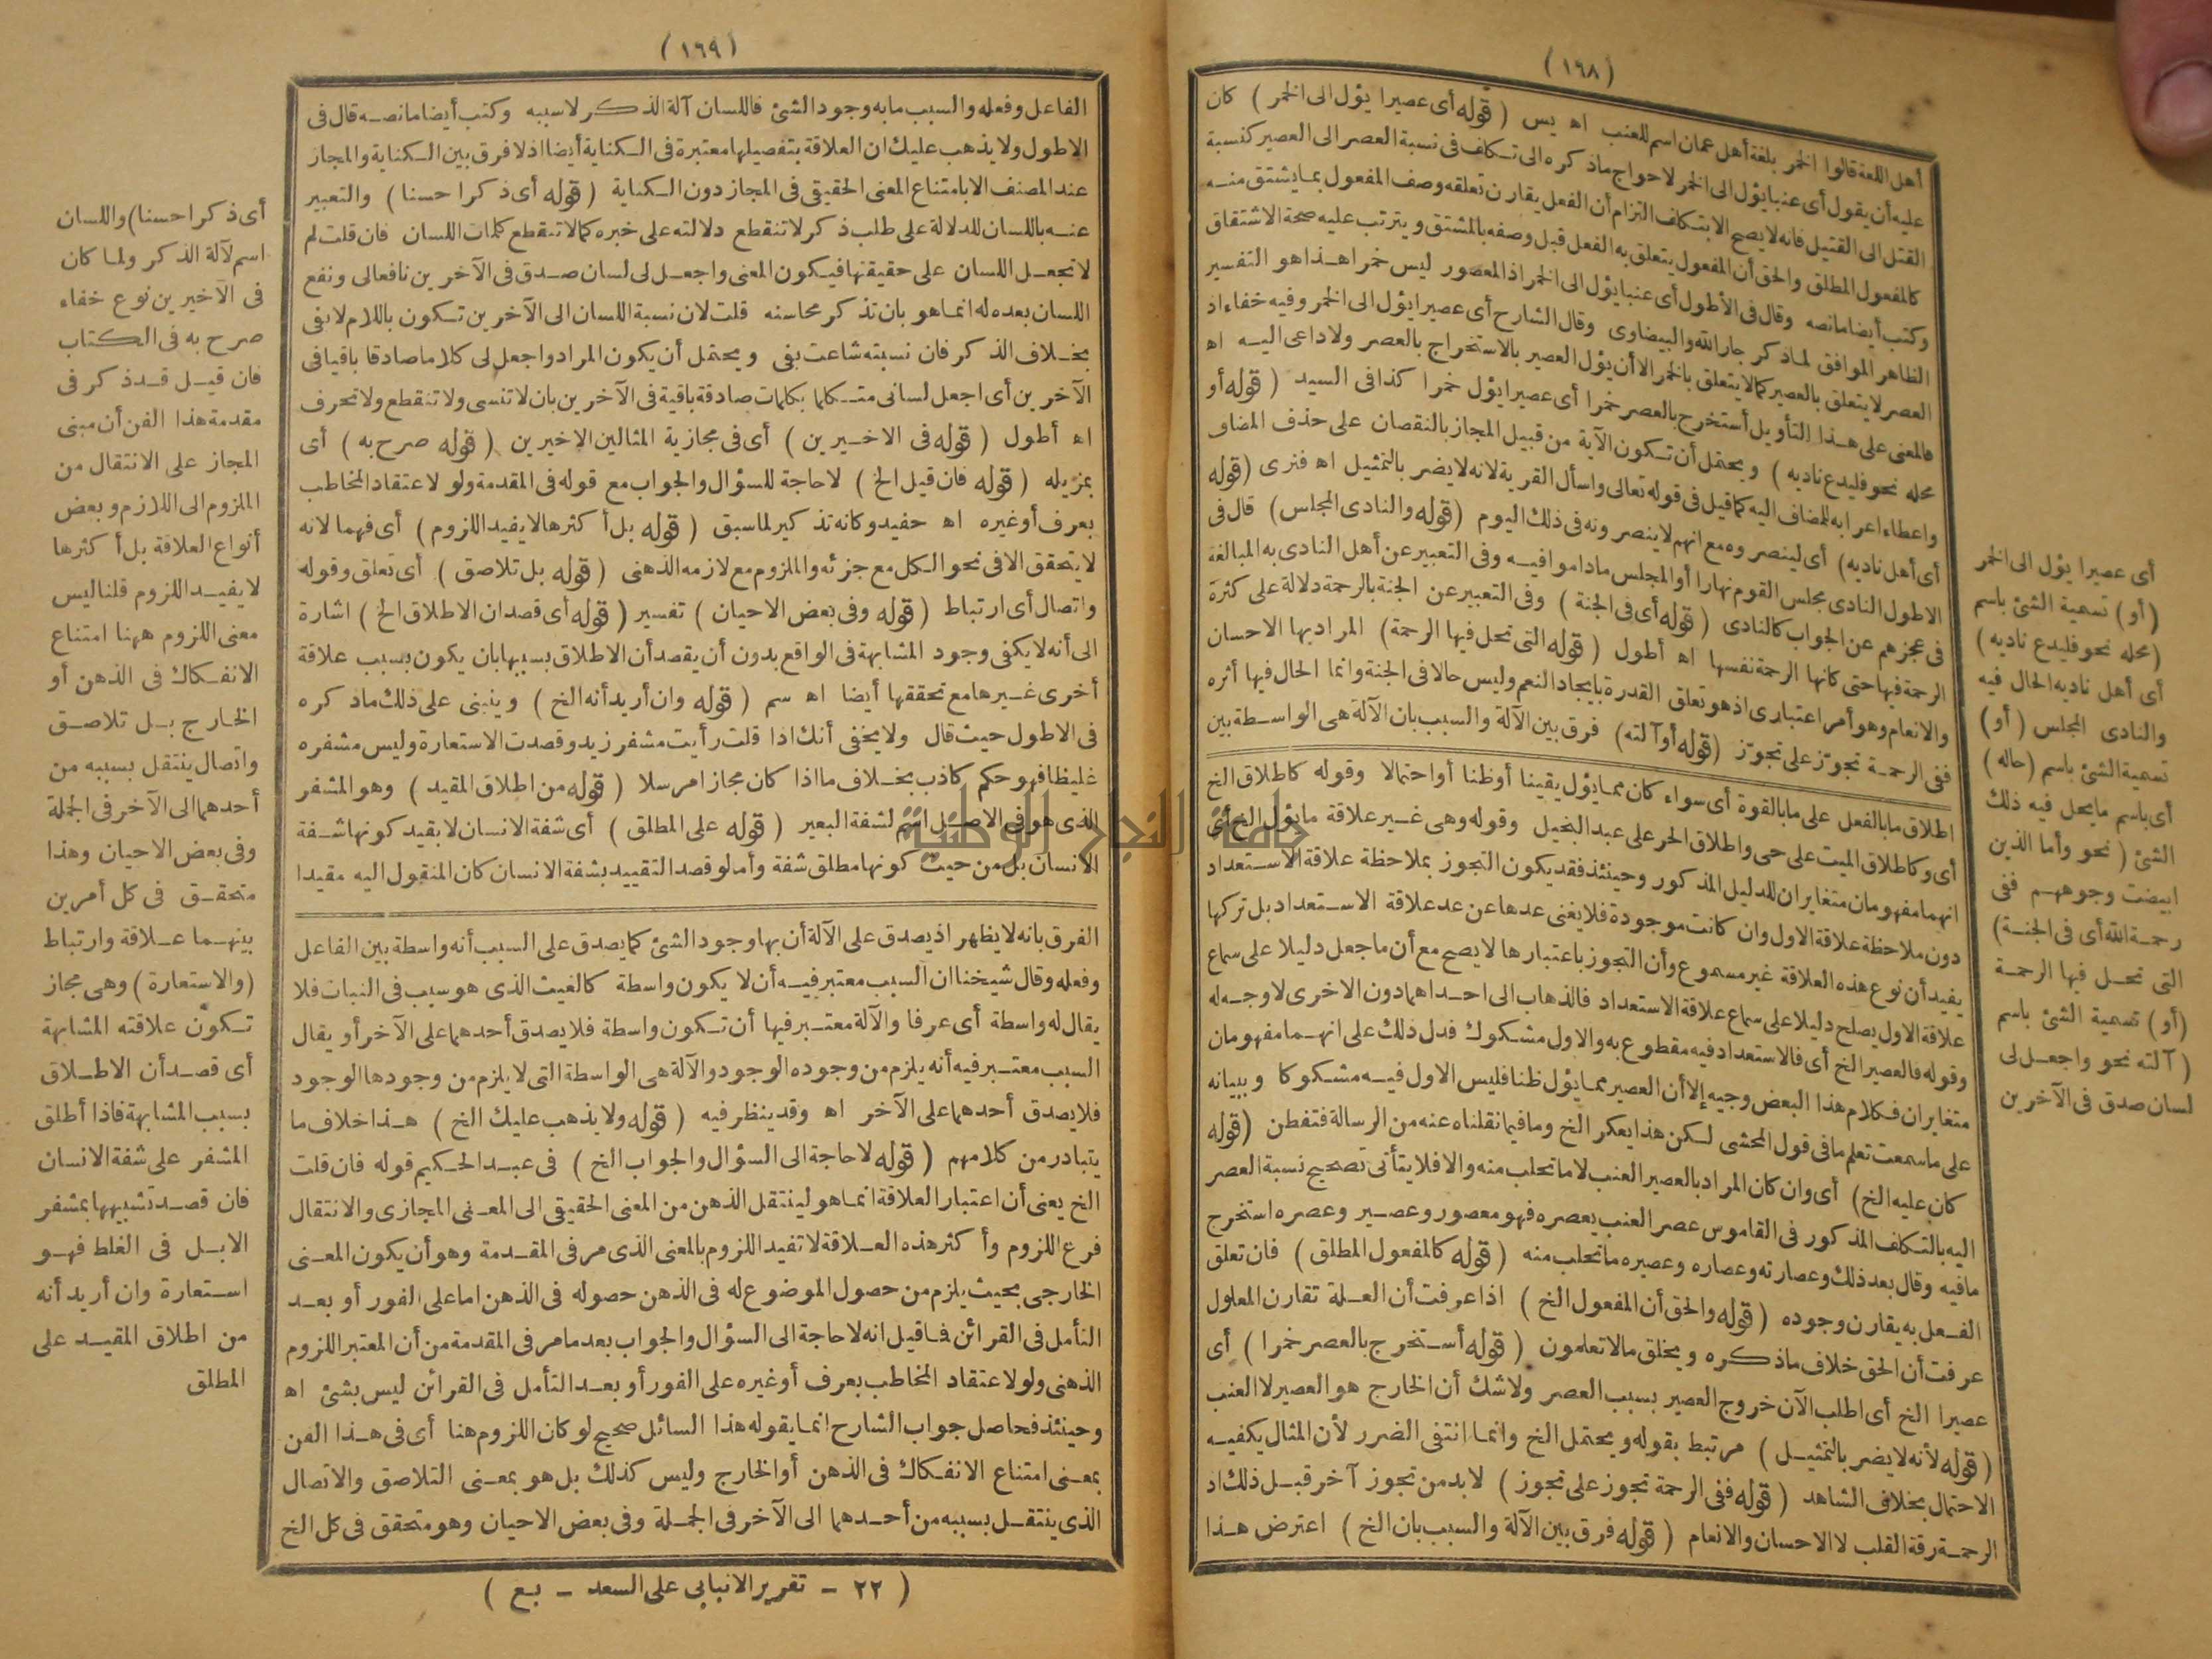 (١٦٨)
أهل اللغة قالوا الخمر بلغة أهل عمان اسم للعنب اه يس (قوله أى عصيرا يؤل الى الخمر) كان
عليه أن يقول أى عنبا يؤل الى الخمر لاحواج ماذكره الى تكلف فى نسبة العصر الى العصير كنسبة
القتل الى القتيل فانه لا يصح الا بتكلف التزام أن الفعل يقارن تعلقه وصف المفعول بما يشتق منه
كالمفعول المطلق والحق أن المفعول يتعلق به الفعل قبل وصفه بالمشتق ويترتب عليه صحة الاشتقاق
وكتب أيضا مانصه وقال فى الأطول أى عنبا يؤل الى الخمر اذ المعصور ليس خمرا هذا هو التفسير
الظاهر الموافق لما ذكر جار الله والبيضاوى وقال الشارح أى عصيرا يؤل الى الخمر وفيه خفاء اذ
العصر لا يتعلق بالعصير كما لا يتعلق بالخمر الا أن يؤل العصير بالاستخراج بالعصر ولا داعى اليه اه
فالمعنى على هذا التأويل أستخرج بالعصر خمرا أى عصيرا يؤل خمرا كذا فى السيد (قوله أو
محله نحو فليدع ناديه) ويحتمل أن تكون الآية من قبيل المجاز بالنقصان على حذف المضاف
واعطاء اعرابه للمضاف اليه كما قيل فى قوله تعالى واسأل القرية لانه لا يضر بالتمثيل اه فنرى (قوله
أى أهل ناديه) أى لينصروه مع انهم لا ينصرونه فى ذلك اليوم (قوله والنادى المجلس) قال فى
الاطول النادى مجلس القوم نهارا أو المجلس ماداموا فيه وفى التعبير عن أهل النادى به المبالغة
فى عجزهم عن الجواب كالنادى (قوله أى فى الجنة) وفى التعبير عن الجنة بالرحمة دلالة على كثرة
الرحمة فيها حتى كانها الرحمة نفسها اه أطول (قوله التى تحل فيها الرحمة) المراد بها الاحسان
والانعام وهو أمر اعتبارى اذ هو تعلق القدرة بايجاد النعم وليس حالا فى الجنة وانما الحال فيها أثره
ففى الرحمة تجوّز على تجوّز (قوله أو آلته) فرق بين الآلة والسبب بان الآلة هى الواسطة بين
اطلاق ما بالفعل على ما بالقوة أى سواء كان مما يؤل يقينا أو ظنا أو احتمالا وقوله كاطلاق الخ
أى وكاطلاق الميت على حى واطلاق الحر على عبد البخيل وقوله وهى غير علاقة ما يؤل الخ أى
انهما مفهومان متغايران للدليل المذكور وحينئذ فقد يكون التجوز بملاحظة علاقة الاستعداد
دون ملاحظة علاقة الاول وان كانت موجودة فلا يغنى عدها عن عد علاقة الاستعداد بل تركها
يفيد أن نوع هذه العلاقة غير مسموع وأن التجوز باعتبارها لا يصح مع أن ما جعل دليلا على سماع
علاقة الاول يصلح دليلا على سماع علاقة الاستعداد فالذهاب الى احداهما دون الاخرى لا وجه له
وقوله فالعصير الخ أى فالاستعداد فيه مقطوع به والاول مشكوك فدل ذلك على انهما مفهومان
متغايران فكلام هذا البعض وجيه إلا أن العصير مما يؤل ظنا فليس الاول فيه مشكوكا وببيانه
على ما سمعت تعلم ما فى قول المحشى لكن هذا يعكر الخ وما فيما نقلناه عنه من الرسالة فتفطن (قوله
كان عليه الخ) أى وان كان المراد بالعصير العنب لا ما تحلب منه والا فلا يتأتى تصحيح نسبة العصر
اليه بالتكلف المذكور فى القاموس عصر العنب يعصره فهو معصور وعصير وعصره استخرج
ما فيه وقال بعد ذلك وعصارته وعصاره وعصيره ما تحلب منه (قوله كالمفعول المطلق) فان تعلق
الفعل به يقارن وجوده (قوله والحق أن المفعول الخ) اذا عرفت أن العلة تقارن المعلول
عرفت أن الحق خلاف ما ذكره ويخلق مالا تعلمون (قوله أستخرج بالعصر خمرا) أى
عصيرا الخ أى اطلب الآن خروج العصير بسبب العصر ولا شك أن الخارج هو العصير لا العنب
(قوله لأنه لا يضر بالتمثيل) مرتبط بقوله ويحتمل الخ وانما انتفى الضرر لأن المثال يكفيه
الاحتمال بخلاف الشاهد (قوله ففى الرحمة تجوز على تجوز) لا بد من تجوز آخر قبل ذلك اذ
الرحمة رقة القلب لا الاحسان والانعام (قوله فرق بين الآلة والسبب بان الخ) اعترض هذا
أى عصيرا يؤل الى الخمر
(أو) تسمية الشئ باسم
(محله نحو فليدع ناديه)
أى أهل ناديه الحال فيه
والنادى المجلس (أو)
تسمية الشئ باسم (حاله)
أى باسم ما يحل فيه ذلك
الشئ (نحو وأما الذين
ابيضت وجوههم ففى
رحمة الله أى فى الجنة)
التى تحل فيها الرحمة
(أو) تسمية الشئ باسم
(آلته نحو واجعل لى
لسان صدق فى الآخرين
(١٦٩)
الفاعل وفعله والسبب ما به وجود الشئ فاللسان آلة الذكر لا سببه وكتب أيضا مانصه قال فى
الاطول ولا يذهب عليك ان العلاقة بتفصيلها معتبرة فى الكناية أيضا اذ لا فرق بين الكناية والمجاز
عند المصنف الا بامتناع المعنى الحقيقى فى المجاز دون الكناية (قوله أى ذكرا حسنا) والتعبير
عنه باللسان للدلالة على طلب ذكر لا تنقطع دلالته على خبره كما لا تنقطع كلمات اللسان فان قلت لم
لا تجعل اللسان على حقيقتها فيكون المعنى واجعل لى لسان صدق فى الآخرين نافعا لى ونفع
اللسان بعده له انما هو بان تذكر محاسنه قلت لان نسبة اللسان الى الآخرين تكون باللام لا بفى
بخلاف الذكر فان نسبته شاعت بفى ويحتمل أن يكون المراد واجعل لى كلاما صادقا باقيا فى
الآخرين أى اجعل لسانى متكلما بكلمات صادقة باقية فى الآخرين بان لا تنسى ولا تنقطع ولا تحرف
اه أطول (قوله فى الاخيرين) أى فى مجازية المثالين الاخيرين (قوله صرح به) أى
بمزيله (قوله فان قيل الخ) لا حاجة للسؤال والجواب مع قوله فى المقدمة ولو لاعتقاد المخاطب
بعرف أو غيره اه حفيد وكانه تذكير لما سبق (قوله بل أكثرها لا يفيد اللزوم) أى فهما لانه
لا يتحقق الا فى نحو الكل مع جزئه والملزوم مع لازمه الذهنى (قوله بل تلاصق) أى تعلق وقوله
واتصال أى ارتباط (قوله وفى بعض الاحيان) تفسير (قوله أى قصد ان الاطلاق الخ) اشارة
الى أنه لا يكفى وجود المشابهة فى الواقع بدون أن يقصد أن الاطلاق بسببها بان يكون بسبب علاقة
أخرى غيرها مع تحققها أيضا اه سم (قوله وان أريد أنه الخ) وينبنى على ذلك ماذكره
فى الاطول حيث قال ولا يخفى أنك اذا قلت رأيت مشفر زيد وقصدت الاستعارة وليس مشفره
غليظا فهو حكم كاذب بخلاف ما اذا كان مجازا مرسلا (قوله من اطلاق المقيد) وهو المشفر
الذى هو فى الاصل اسم لشفة البعير (قوله على المطلق) أى شفة الانسان لا بقيد كونها شفة
الانسان بل من حيث كونها مطلق شفة وأما لو قصد التقييد بشفة الانسان كان المنقول اليه مقيدا
الفرق بانه لا يظهر اذ يصدق على الآلة أن بها وجود الشئ كما يصدق على السبب أنه واسطة بين الفاعل
وفعله وقال شيخنا ان السبب معتبر فيه أن لا يكون واسطة كالغيث الذى هو سبب فى النبات فلا
يقال له واسطة أى عرفا والآلة معتبر فيها أن تكون واسطة فلا يصدق أحدهما على الآخر أو يقال
السبب معتبر فيه أنه يلزم من وجوده الوجود والآلة هى الواسطة التى لا يلزم من وجودها الوجود
فلا يصدق أحدهما على الآخر اه وقد ينظر فيه (قوله ولا يذهب عليك الخ) هذا خلاف ما
يتبادر من كلامهم (قوله لا حاجة الى السؤال والجواب الخ) فى عبد الحكيم قوله فان قلت
الخ يعنى أن اعتبار العلاقة انما هو لينتقل الذهن من المعنى الحقيقى الى المعنى المجازى والانتقال
فرع اللزوم وأكثر هذه العلاقة لا تفيد اللزوم بالمعنى الذى مر فى المقدمة وهو أن يكون المعنى
الخارجى بحيث يلزم من حصول الموضوع له فى الذهن حصوله فى الذهن اما على الفور أو بعد
التأمل فى القرائن فما قيل انه لا حاجة الى السؤال والجواب بعد ما مر فى المقدمة من أن المعتبر اللزوم
الذهنى ولو لاعتقاد المخاطب بعرف أو غيره على الفور أو بعد التأمل فى القرائن ليس بشئ اه
وحينئذ فحاصل جواب الشارح انما يقوله هذا السائل صحيح لو كان اللزوم هنا أى فى هذا الفن
بمعنى امتناع الانفكاك فى الذهن أو الخارج وليس كذلك بل هو بمعنى التلاصق والاتصال
الذى ينتقل بسببه من أحدهما الى الآخر فى الجملة وفى بعض الاحيان وهو متحقق فى كل الخ
أى ذكرا حسنا) واللسان
اسم لآلة الذكر ولما كان
فى الاخيرين نوع خفاء
صرح به فى الكتاب
فان قيل قد ذكر فى
مقدمة هذا الفن أن مبنى
المجاز على الانتقال من
الملزوم الى اللازم وبعض
أنواع العلاقة بل أكثرها
لا يفيد اللزوم قلنا ليس
معنى اللزوم ههنا امتناع
الانفكاك فى الذهن أو
الخارج بل تلاصق
واتصال ينتقل بسببه من
أحدهما الى الآخر فى الجملة
وفى بعض الاحيان وهذا
متحقق فى كل أمرين
بينهما علاقة وارتباط
(والاستعارة) وهى مجاز
تكون علاقته المشابهة
أى قصد أن الاطلاق
بسبب المشابهة فاذا أطلق
المشفر على شفة الانسان
فان قصد تشبيهها بمشفر
الابل فى الغلظ فهو
استعارة وان أريد أنه
من اطلاق المقيد على
المطلق
(٢٢ - تقرير الانبابى على السعد - بع)
جامعة النجاح الوطنية